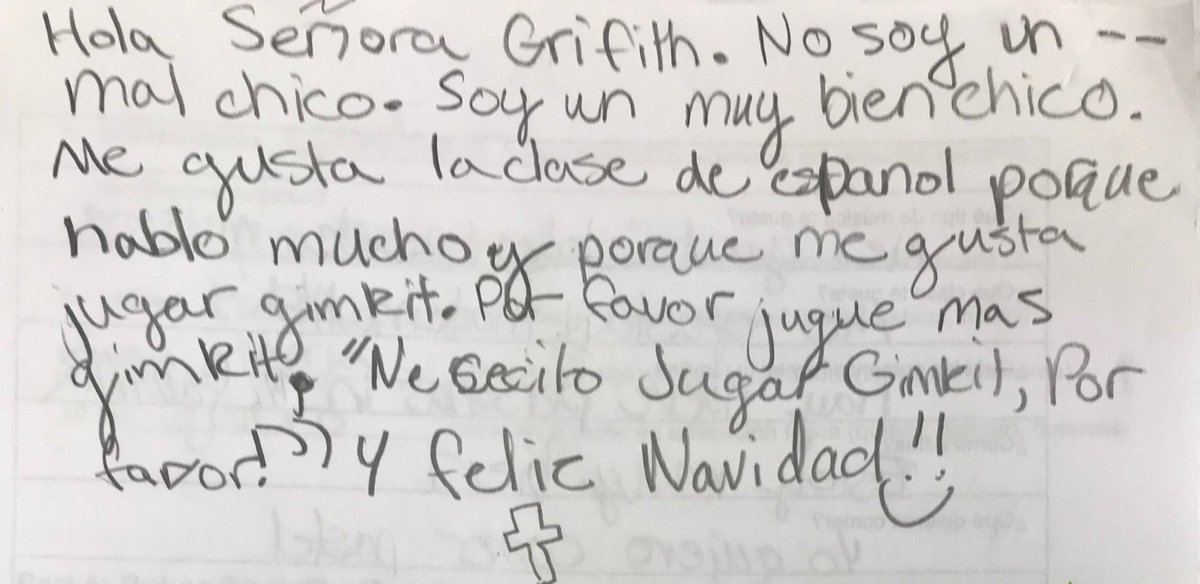 Hola Señora Grifith. No soy un --
mal chico. Soy un muy bien chico.
Me gusta la clase de espanol porque
hablo mucho y porque me gusta
jugar gimkit. Por favor jugue mas
gimkit. "Nesecito Jugar Gimkit, Por
favor!" Y feliz Navidad!!